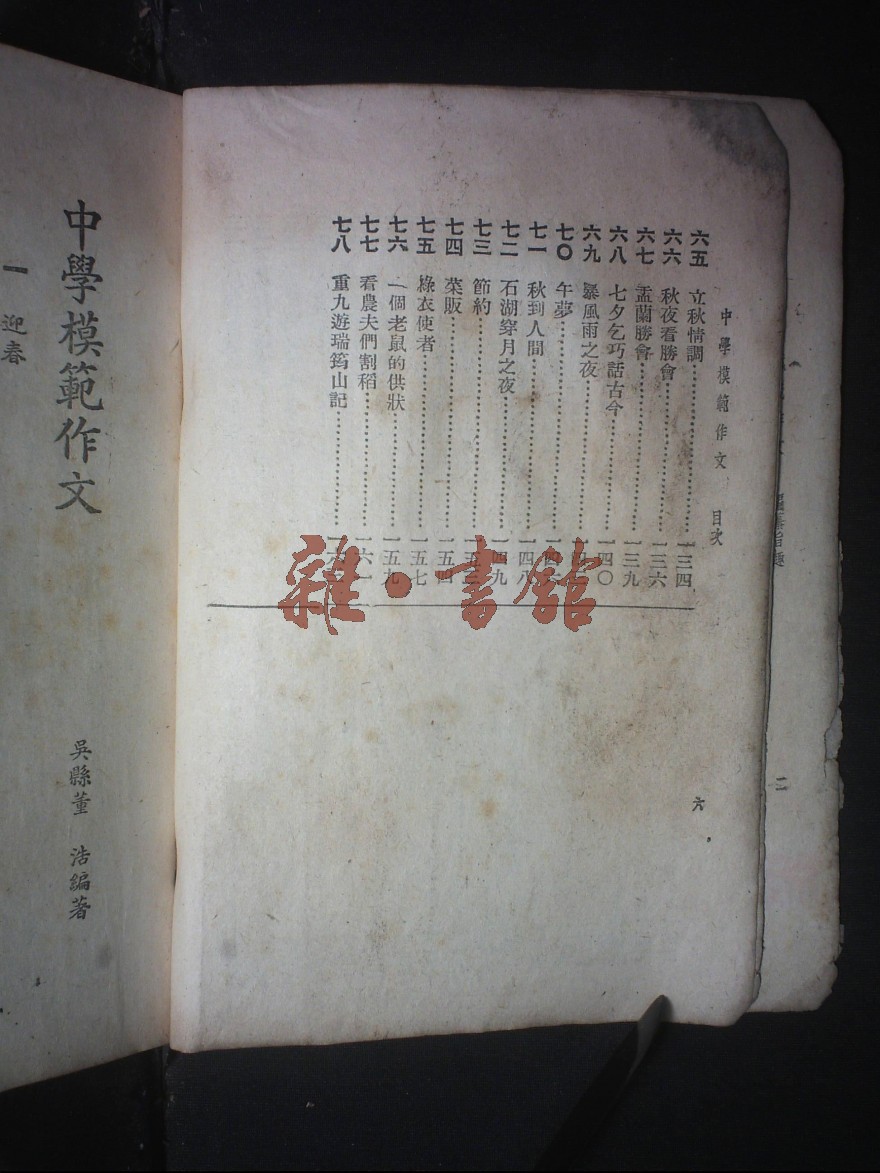 中學模範作文 目次
六五 立秋情調 一三四
六六 秋夜看勝會 一三六
六七 盂蘭勝會 一三九
六八 七夕乞巧話古今 一四〇
六九 暴風雨之夜
七〇 午夢
七一 秋到人間 一四八
七二 石湖穿月之夜 一四九
七三 節約
七四 菜販 一五四
七五 綠衣使者 一五七
七六 一個老鼠的供狀 一五九
七七 看農夫們割稻 一六一
七八 重九遊瑞筠山記
六
雜·書館
中學模範作文
吳縣董 浩編著
一 迎春
二